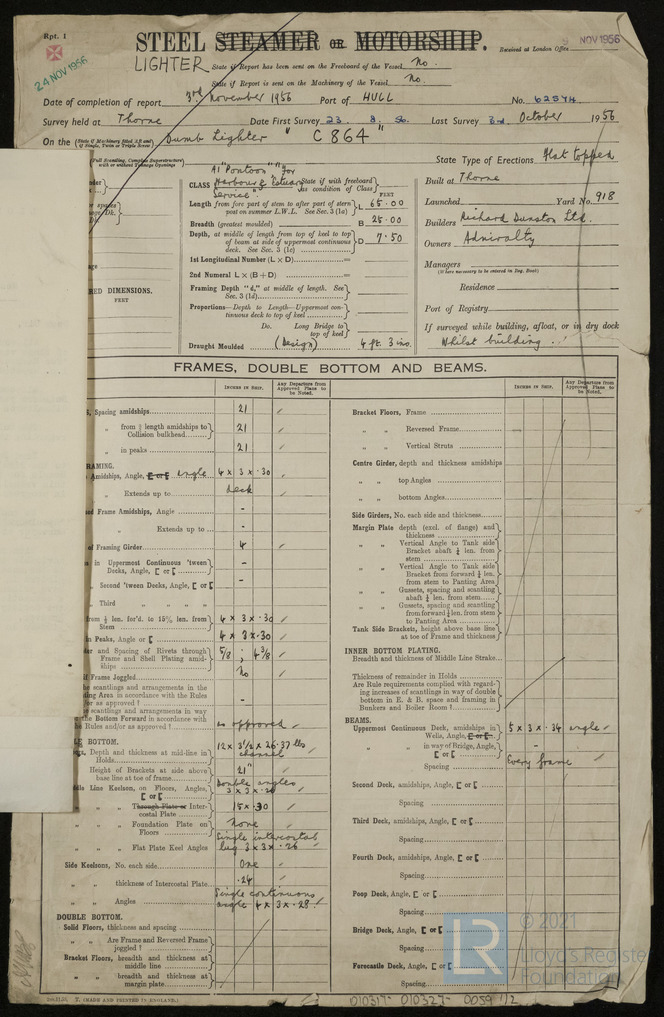 Rpt. 1
24 NOV 1956
STEEL STEAMER OR MOTORSHIP.
LIGHTER
Received at London Office
NOV 1956
State if Report has been sent on the Freeboard of the Vessel No.
State if Report is sent on the Machinery of the Vessel No.
Date of completion of report 3rd November 1956 Port of HULL No. 62574
Survey held at Thorne Date First Survey 23. 8. 56. Last Survey 3rd October 1956
On the (State if Machinery fitted Aft and if Single, Twin or Triple Screw) Dumb Lighter "C 864"
(Full Scantling, Complete Superstructure with or without Tonnage Openings
State Type of Erections Flat topped
CLASS A1 "Pontoon" for Harbour & Estuary Service"
State if with freeboard as condition of Class
FEET
Length from fore part of stem to after part of stern post on summer L.W.L. See Sec. 3 (1a) L 65.00
Breadth (greatest moulded) B 25.00
Depth, at middle of length from top of keel to top of beam at side of uppermost continuous deck. See Sec. 3 (1c) D 7.50
1st Longitudinal Number (L × D) =
2nd Numeral L × (B + D) =
Framing Depth "d," at middle of length. See Sec. 3 (1d)
Proportions—Depth to Length—Uppermost continuous deck to top of keel
Do. Long Bridge to top of keel
Draught Moulded (Design) 4 ft. 3 ins.
Built at Thorne
Launched Yard No. 918
Builders Richard Dunston Ltd.
Owners Admiralty
Managers
(Where necessary to be entered in Reg. Book)
Residence
Port of Registry
If surveyed while building, afloat, or in dry dock
Whilst building
ED DIMENSIONS.
FEET
FRAMES, DOUBLE BOTTOM AND BEAMS.
INCHES IN SHIP. Any Departure from Approved Plans to be Noted.
S, Spacing amidships 21
" from ⅗ length amidships to Collision bulkhead 21
" in peaks 21
RAMING.
Amidships, Angle, [ or [ angle 4 × 3 × .30
" Extends up to deck
ed Frame Amidships, Angle -
" Extends up to -
of Framing Girder 4
s in Uppermost Continuous 'tween Decks, Angle, [ or [ -
" Second 'tween Decks, Angle, [ or [ -
" Third " " " "
from ½ len. for'd. to 15% len. from Stem 4 × 3 × .30
in Peaks, Angle or [ 4 × 3 × .30
ter and Spacing of Rivets through Frame and Shell Plating amidships 5/8 ; 4 3/8
if Frame Joggled No
he scantlings and arrangements in the ting Area in accordance with the Rules or as approved? -
e scantlings and arrangements in way the Bottom Forward in accordance with e Rules and/or as approved? as approved
LE BOTTOM.
rs, Depth and thickness at mid-line in Holds 12 × 3½ × 26.37 lbs channel
Height of Brackets at side above base line at toe of frame 21"
dle Line Keelson, on Floors, Angles, [ or [ Double angles 3 × 3 × .26
" " Through Plate or Intercostal Plate 15 × .30
" " Foundation Plate on Floors None
" " Flat Plate Keel Angles Single intercostal lug 3 × 3 × .26
Side Keelsons, No. each side One
" " thickness of Intercostal Plate .24
" " Angles Single continuous angle 4 × 3 × .28
DOUBLE BOTTOM.
Solid Floors, thickness and spacing
" " Are Frame and Reversed Frame joggled?
Bracket Floors, breadth and thickness at middle line
" " breadth and thickness at margin plate
INCHES IN SHIP. Any Departure from Approved Plans to be Noted.
Bracket Floors, Frame
" " Reversed Frame
" " Vertical Struts
Centre Girder, depth and thickness amidships
" " top Angles
" " bottom Angles
Side Girders, No. each side and thickness
Margin Plate depth (excl. of flange) and thickness
" " Vertical Angle to Tank side Bracket abaft ¼ len. from stem
" " Vertical Angle to Tank side Bracket from forward ¼ len. from stem to Panting Area
" " Gussets, spacing and scantling abaft ¼ len. from stem
" " Gussets, spacing and scantling from forward ¼ len. from stem to Panting Area
Tank Side Brackets, height above base line at toe of Frame and thickness
INNER BOTTOM PLATING.
Breadth and thickness of Middle Line Strake
Thickness of remainder in Holds
Are Rule requirements complied with regarding increases of scantlings in way of double bottom in E. & B. space and framing in Bunkers and Boiler Room?
BEAMS.
Uppermost Continuous Deck, amidships in Wells, Angle, [ or [ 5 × 3 × .34 angle
" " in way of Bridge, Angle, [ or [ -
Spacing Every frame
Second Deck, amidships, Angle, [ or [
Spacing
Third Deck, amidships, Angle, [ or [
Spacing
Fourth Deck, amidships, Angle, [ or [
Spacing
Poop Deck, Angle, [ or [
Spacing
Bridge Deck, Angle, [ or [
Spacing
Forecastle Deck, Angle, [ or [
Spacing
LR
© 2021
Lloyd's Register
Foundation
T. (MADE AND PRINTED IN ENGLAND.)
010317-010327-0059 1/2